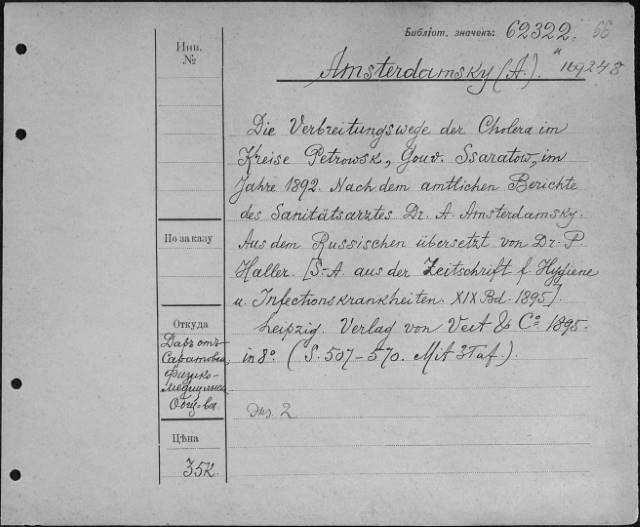 Библіот. значекъ: 62322. 66
Инв.
№
Amsterdamsky (A.). " 169248
Die Verbreitungswege der Cholera im
Kreise Petrowsk, Gouv. Ssaratow, im
Jahre 1892. Nach dem amtlichen Berichte
des Sanitätsarztes Dr. A. Amsterdamsky.
По заказу
Aus dem Russischen übersetzt von Dr. P.
Haller. [S.-A. aus der Zeitschrift f. Hygiene
u. Infectionskrankheiten. XIX Bd. 1895].
Leipzig. Verlag von Veit & Co. 1895.
in 8°. (S. 507-570. Mit 3 Taf.).
Откуда
Даръ отъ
Саратовск.
Физико-
Медицинск.
Общ-ва
Экз. 2
Цѣна
35к.